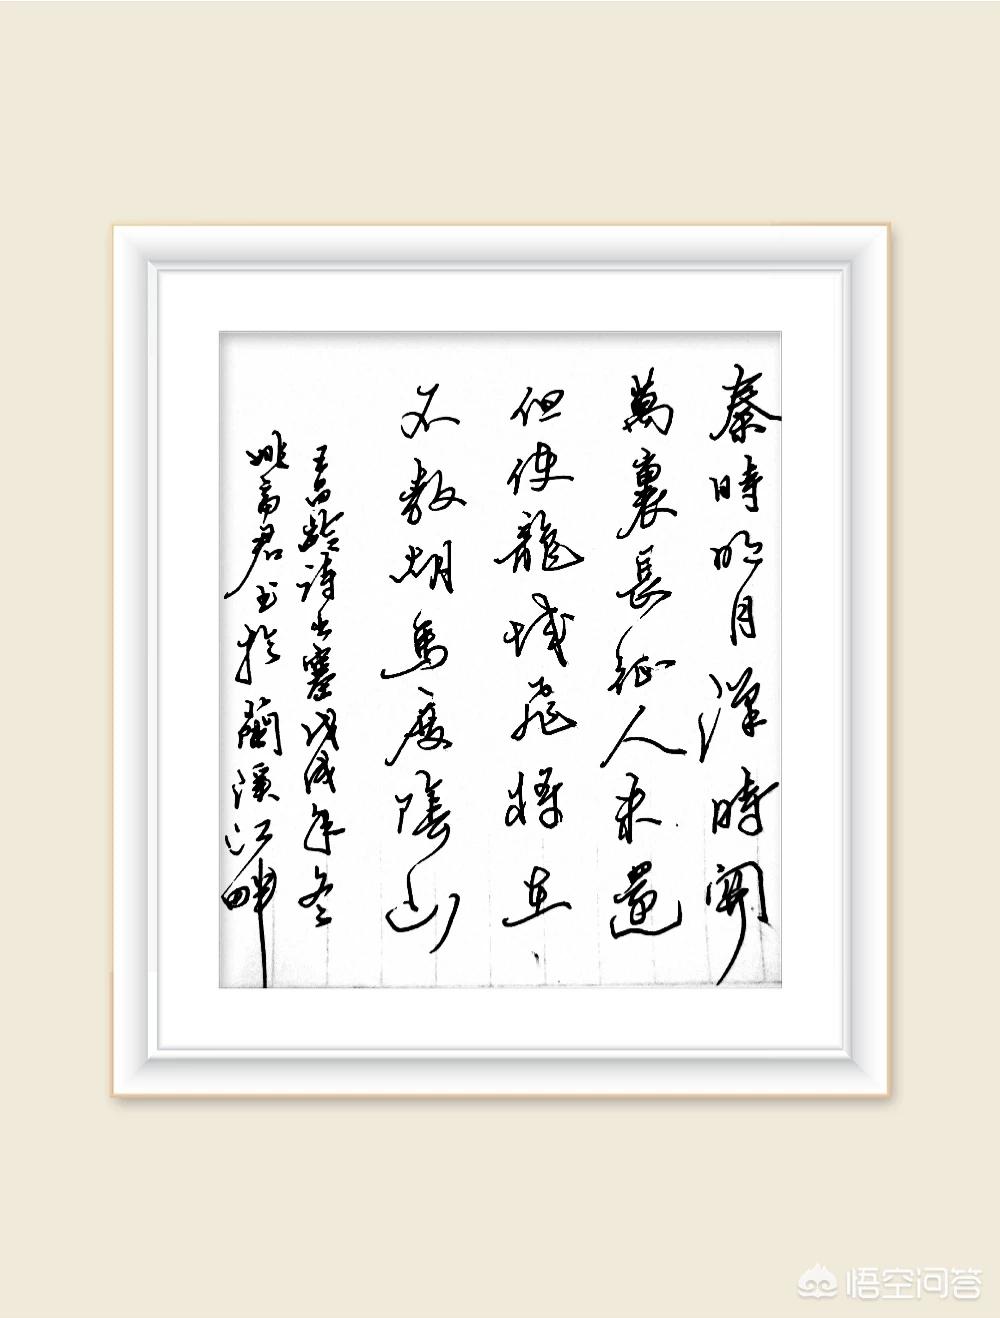 秦時明月漢時關
萬裏長征人未還
但使龍城飛將在
不教胡馬度陰山
王昌齡诗出塞戊戌年冬
姚富君书於蘭溪江畔
悟空问答